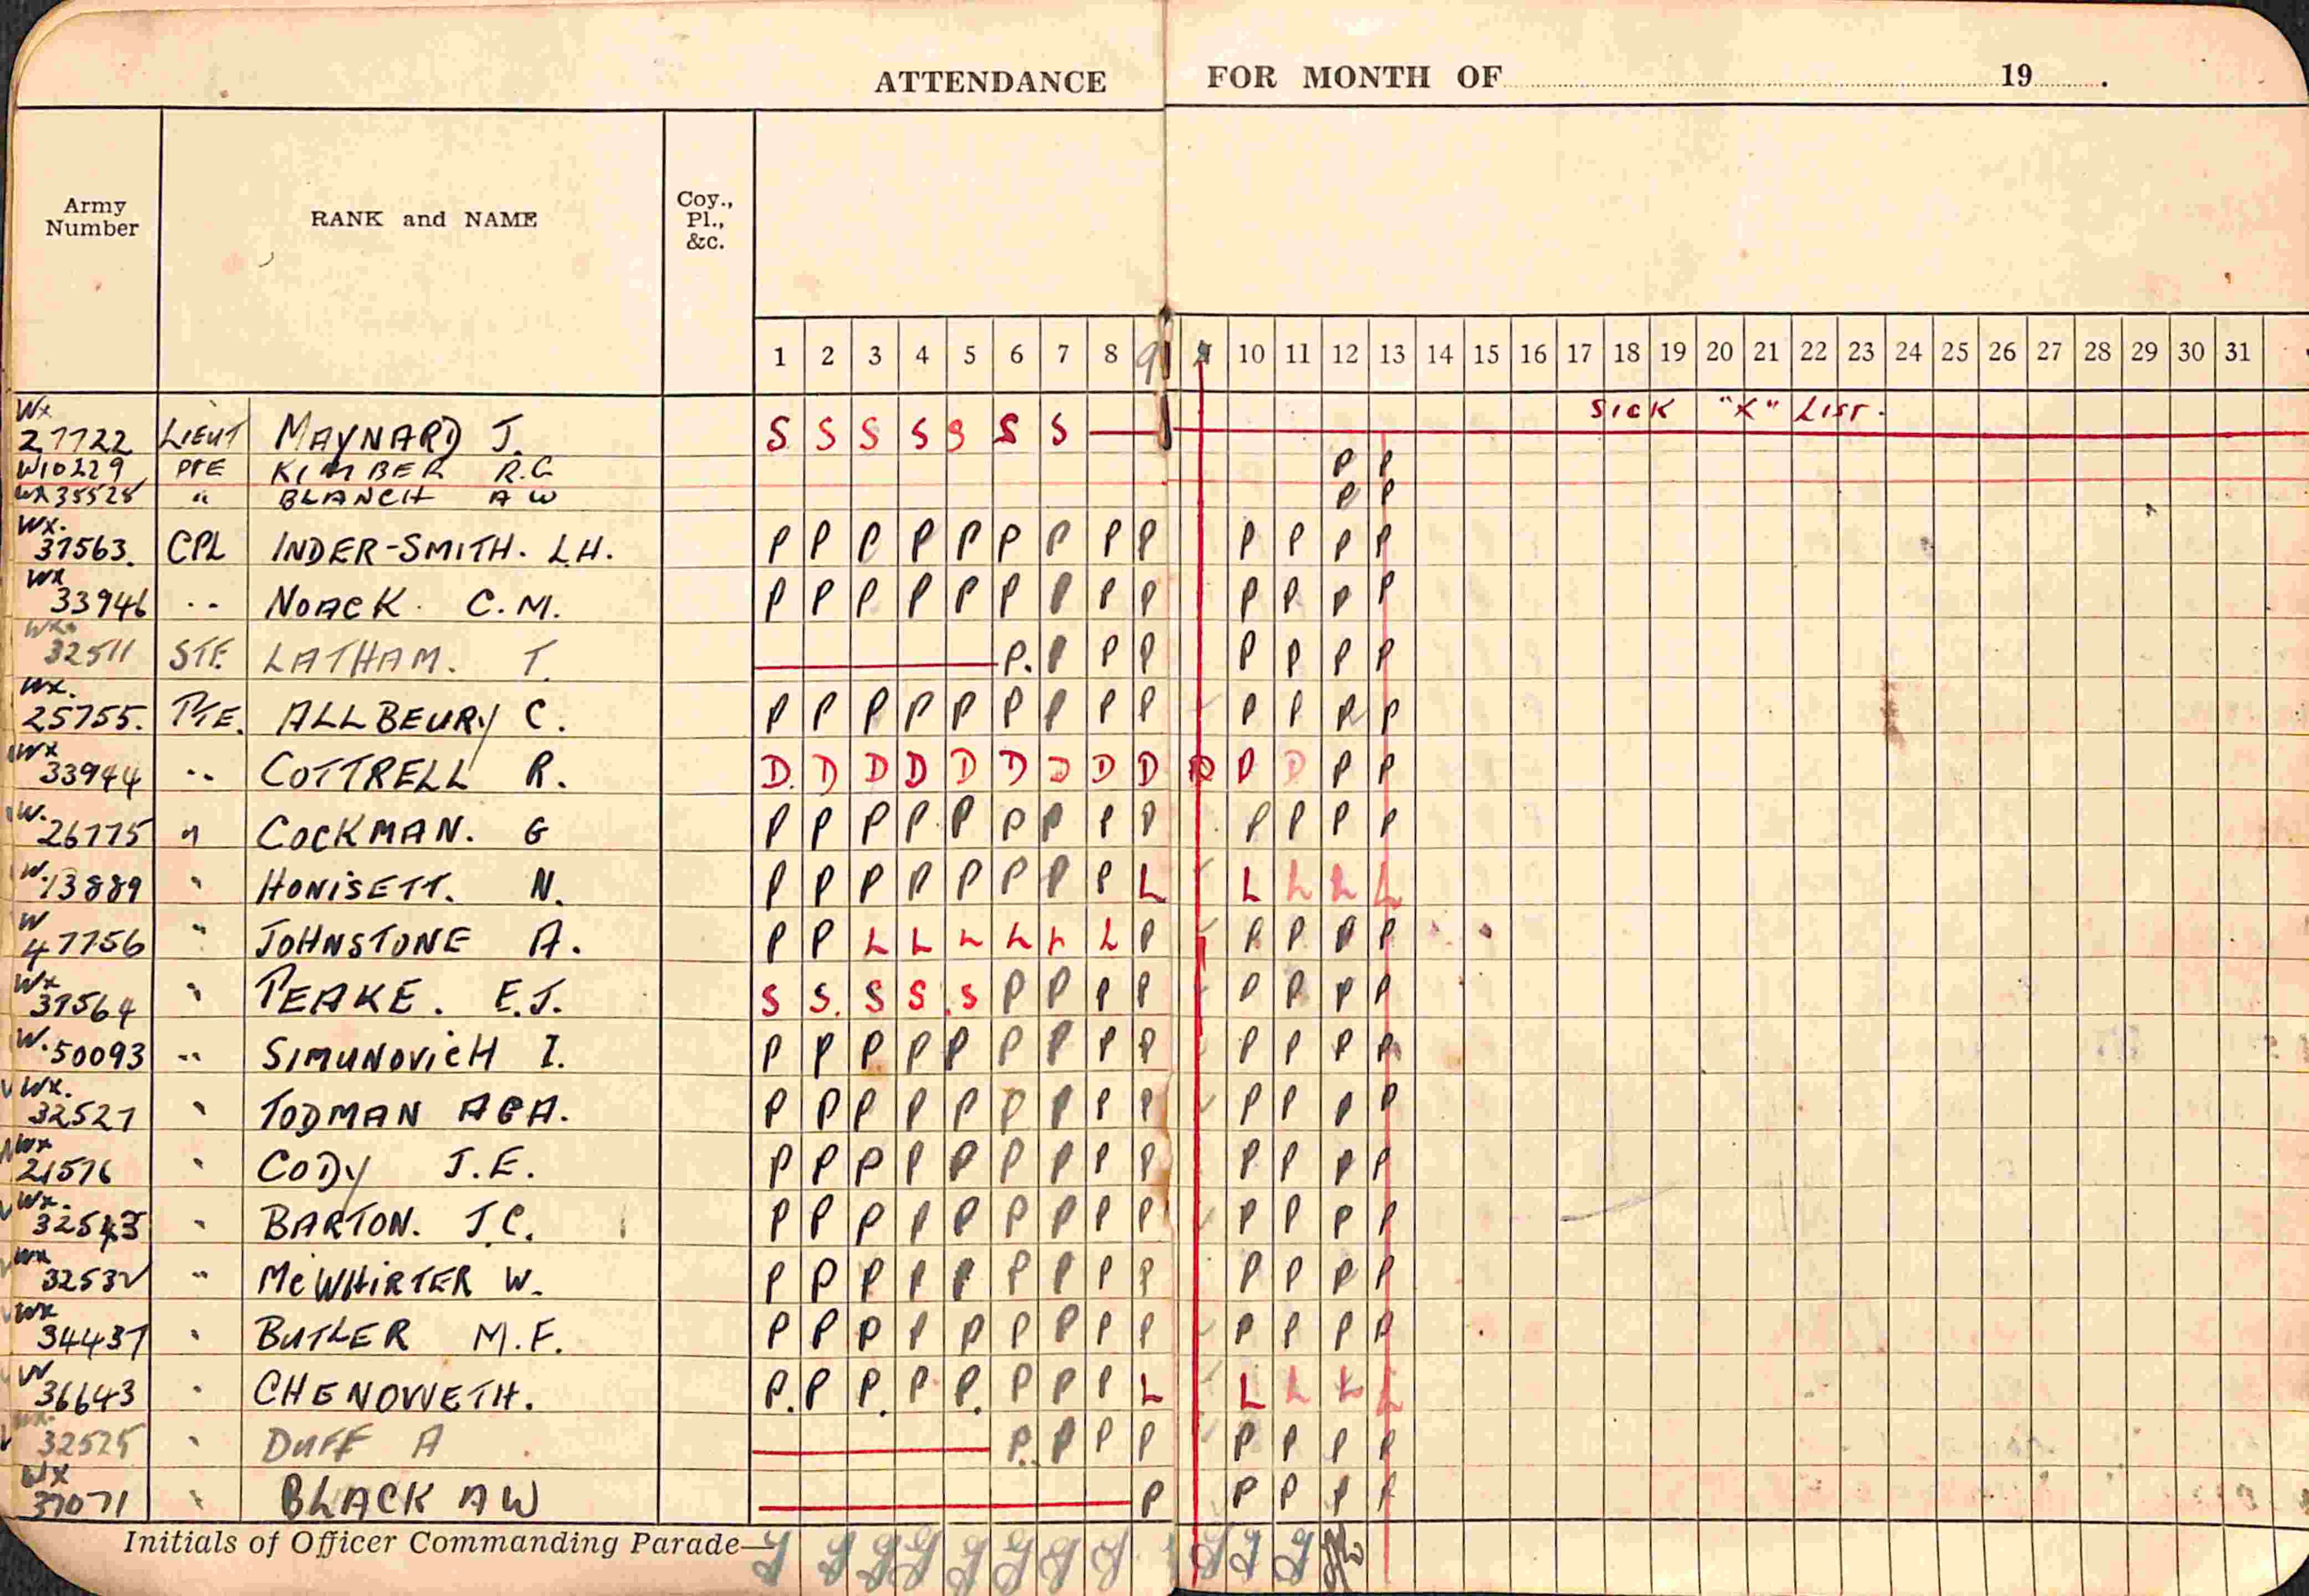 ATTENDANCE FOR MONTH OF 19 .
Army Number RANK and NAME Coy., Pl., &c.
1 2 3 4 5 6 7 8 9 10 11 12 13 14 15 16 17 18 19 20 21 22 23 24 25 26 27 28 29 30 31
SICK "X" LIST.
Wx 27722 LIEUT MAYNARD J. S S S S S S S
W10229 PTE KIMBER R.G P P
WX35528 " BLANCH A W P P
WX. 37563. CPL INDER-SMITH. L.H. P P P P P P P P P P P P P
WX 33946 .. NOACK. C.M. P P P P P P P P P P P P P
WX. 32511 STF. LATHAM. T. P. P P P P P P P
WX. 25755. PTE. ALLBEURY C. P P P P P P P P P P P P P
WX 33944 .. COTTRELL R. D. D D D D D D D D D D D P P
W. 26775 " COCKMAN. G P P P P P P P P P P P P P
W. 13889 " HONISETT. N. P P P P P P P P L L L L L
W 47756 " JOHNSTONE A. P P L L L L L L P P P P P
WX 37564 " PEAKE. E.J. S S. S S S P P P P P P P P
W. 50093 .. SIMUNOVICH I. P P P P P P P P P P P P P
WX. 32527 " TODMAN AGA. P P P P P P P P P P P P P
WX 21576 " CODY J.E. P P P P P P P P P P P P P
WX. 32543 " BARTON. J.C. P P P P P P P P P P P P P
WX 32532 " McWHIRTER W. P P P P P P P P P P P P P
WX 34437 " BUTLER M.F. P P P P P P P P P P P P P
W 36643 " CHENOWETH. P. P P. P P. P P P L L L L L
WX. 32525 " DUFF A P. P P P P P P P
WX 37071 " BLACK A W P P P P P
Initials of Officer Commanding Parade—